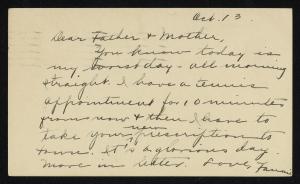 Oct. 13.
Dear Father & Mother,
You know today is
my worst day - all morning
straight. I have a tennis
appointment for 10 minutes
from now & then I have to
take your new prescription to
town. It's a glorious day.
More in letter. Love,